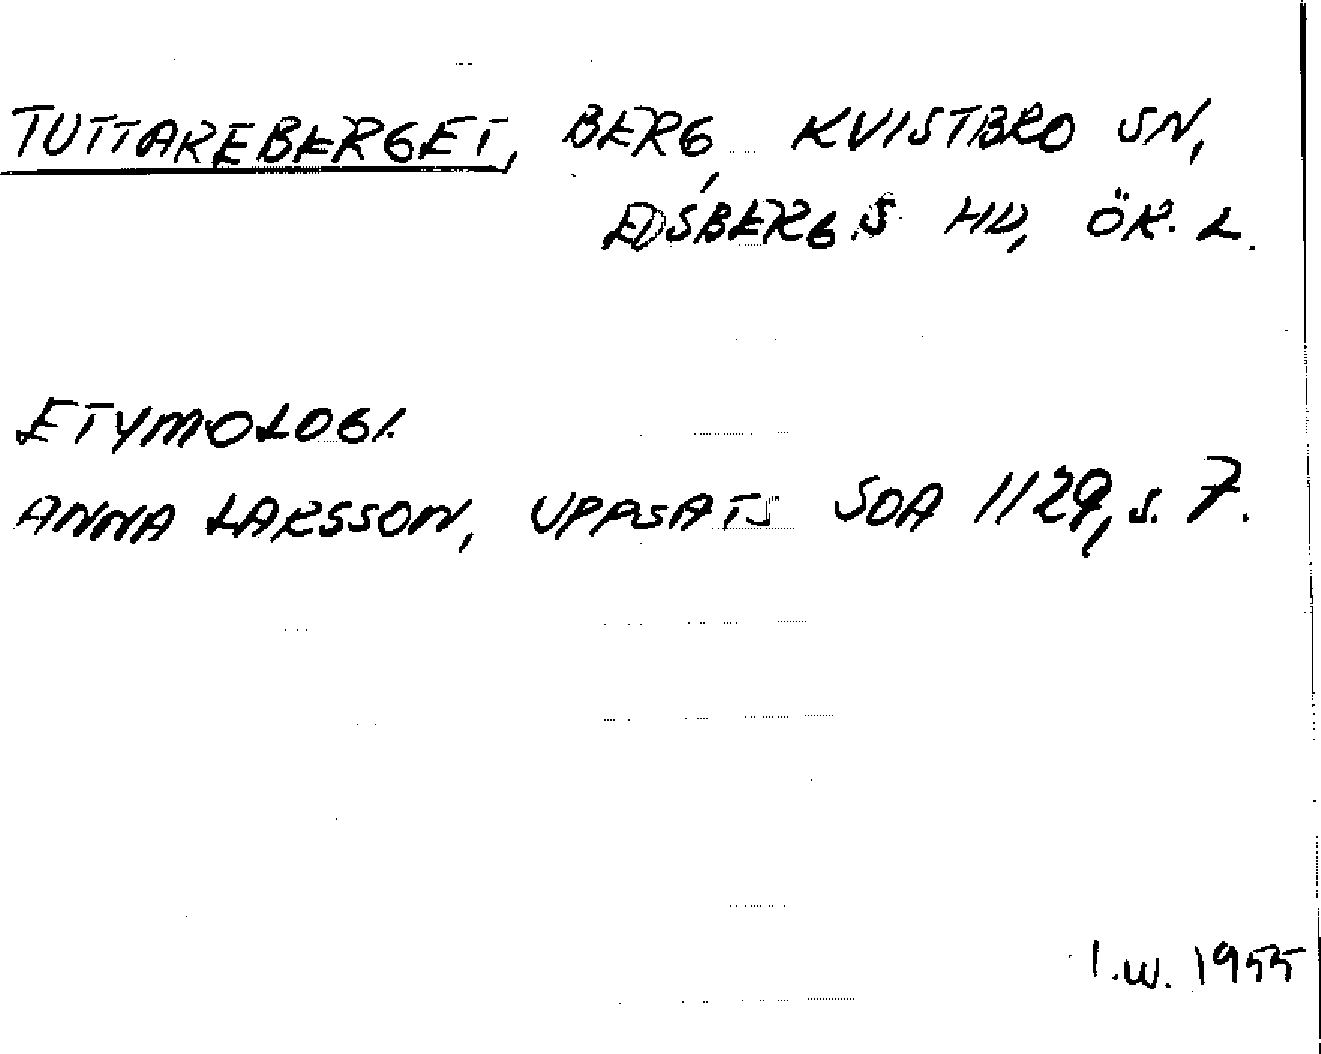 TUTTAREBERGET, BERG, KVISTBRO SN,
EDSBERGS HD, ÖR. L.
ETYMOLOGI.
ANNA LARSSON, UPPSATS SOA 1129, s. 7.
I.W. 1955